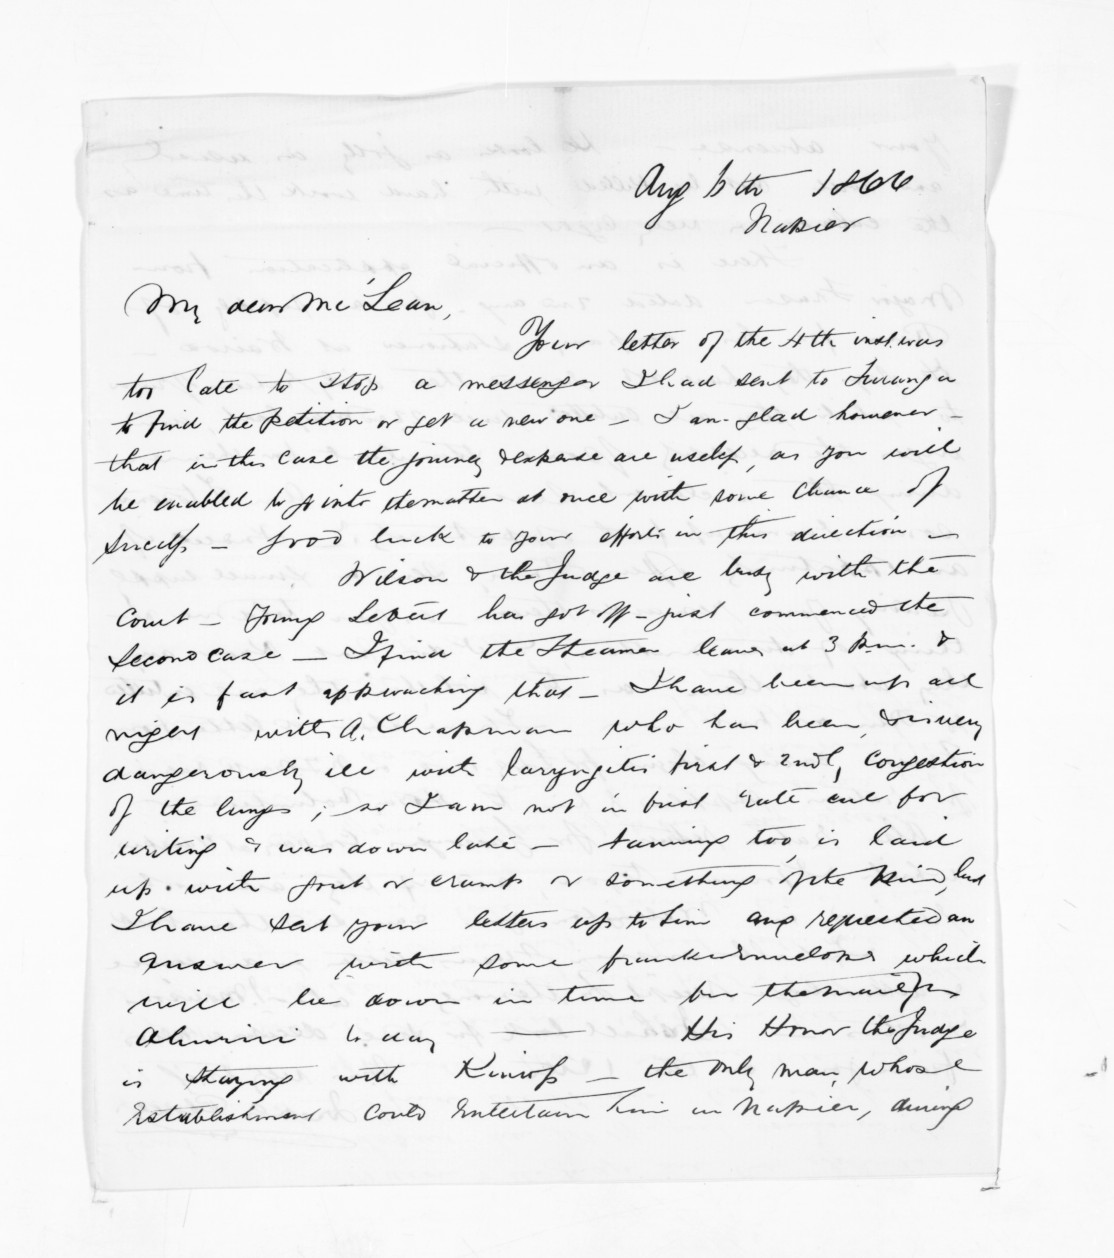 Aug 6th 1866
Napier
My dear McLean,
Your letter of the 4th inst. was
too late to stop a messenger I had sent to Turanga
to find the petition or get a new one — I am glad however —
that in this case the journey & expense are useful, as you will
be enabled to go into the matter at once with some chance of
success — Good luck to your efforts in this direction —
Wilson & the Judge are busy with the
Court — Young has got off — just commenced the
second case — I find the Steamer leaves at 3 p.m. &
it is fast approaching that — I have been up all
night with A. Chapman who has been, & is very
dangerously ill with laryngitis first & 2ndly congestion
of the lungs; so I am not in first rate cue for
writing & was down late — too, is laid
up with gout or cramp or something of the kind, but
I have sent your letters up to him and requested an
answer with some franked envelopes which
will be down in time for the mail per
Ahuriri to day — His Honor the Judge
is staying with Kinross — the only man, whose
establishment could entertain him in Napier, during